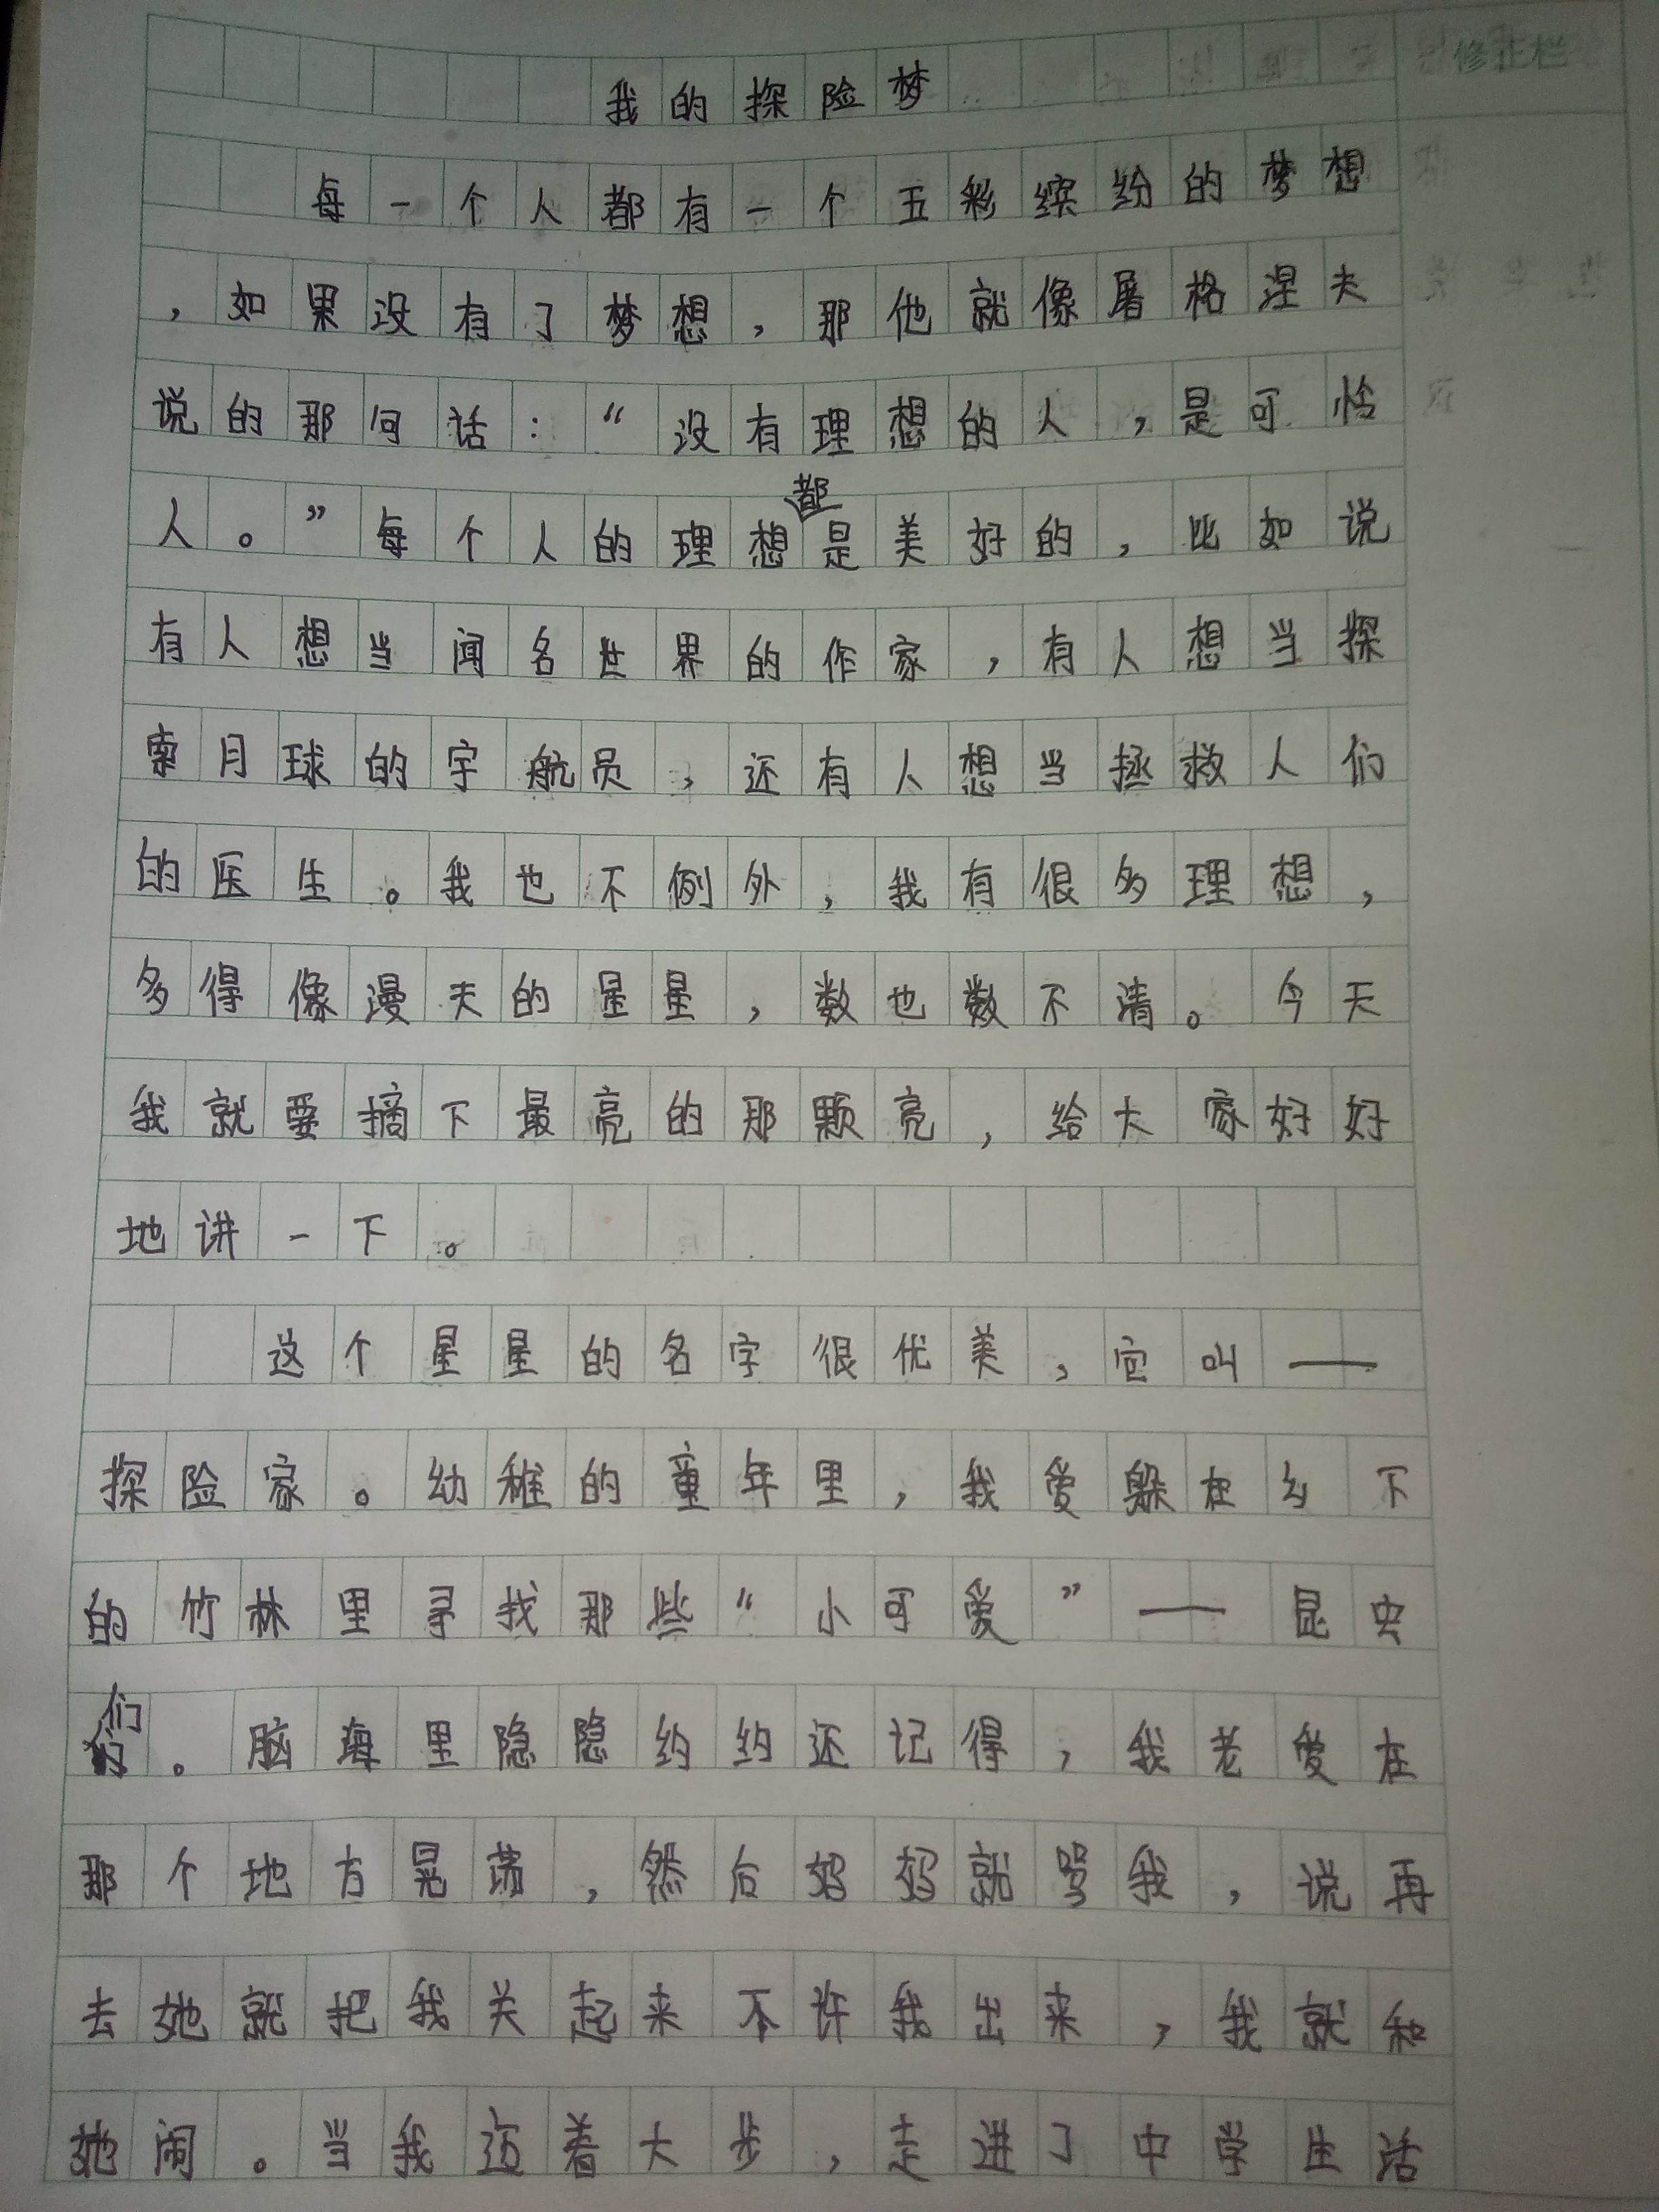 修正栏
我的探险梦
每一个人都有一个五彩缤纷的梦想
，如果没有了梦想，那他就像屠格涅夫
说的那句话：“没有理想的人，是可怜
人。”每个人的理想都是美好的，比如说
有人想当闻名世界的作家，有人想当探
索月球的宇航员，还有人想当拯救人们
的医生。我也不例外，我有很多理想，
多得像漫天的星星，数也数不清。今天
我就要摘下最亮的那颗亮，给大家好好
地讲一下。
这个星星的名字很优美，它叫——
探险家。幼稚的童年里，我爱躲在乡下
的竹林里寻找那些“小可爱”——昆虫
们。脑海里隐隐约约还记得，我老爱在
那个地方晃荡，然后妈妈就骂我，说再
去她就把我关起来不许我出来，我就和
她闹。当我迈着大步，走进了中学生活